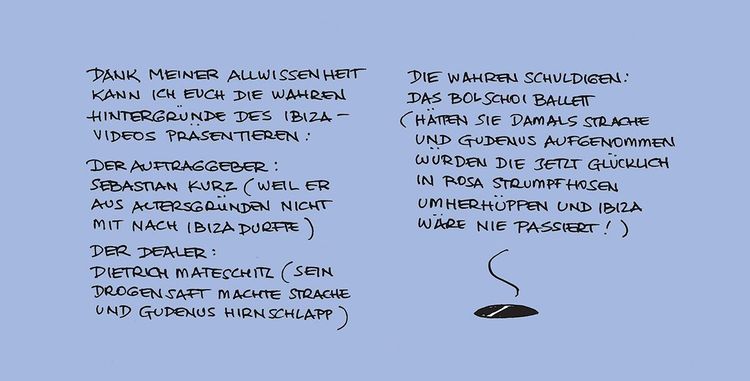 DANK MEINER ALLWISSENHEIT
KANN ICH EUCH DIE WAHREN
HINTERGRÜNDE DES IBIZA-
VIDEOS PRÄSENTIEREN:
DER AUFTRAGGEBER:
SEBASTIAN KURZ (WEIL ER
AUS ALTERSGRÜNDEN NICHT
MIT NACH IBIZA DURFTE)
DER DEALER:
DIETRICH MATESCHITZ (SEIN
DROGENSAFT MACHTE STRACHE
UND GUDENUS HIRNSCHLAPP)
DIE WAHREN SCHULDIGEN:
DAS BOLSCHOI BALLETT
(HÄTTEN SIE DAMALS STRACHE
UND GUDENUS AUFGENOMMEN
WÜRDEN DIE JETZT GLÜCKLICH
IN ROSA STRUMPFHOSEN
UMHERHÜPFEN UND IBIZA
WÄRE NIE PASSIERT!)